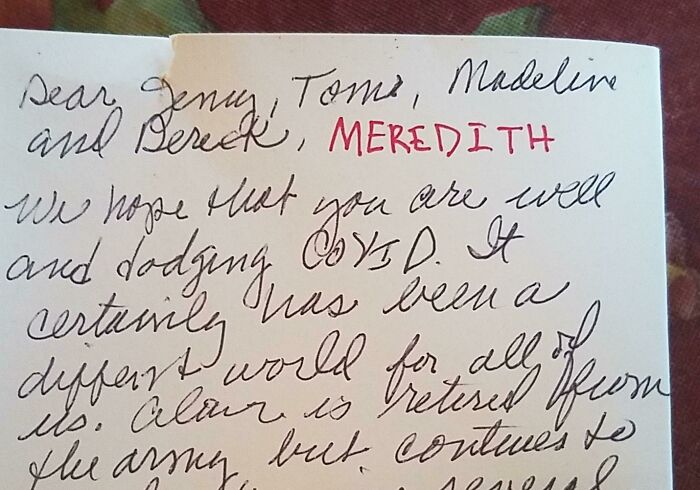 Dear Jenny, Tomi, Madeline
and Bereck, MEREDITH
We hope that you are well
and dodging COVID. It
certainly has been a
different world for all of
us. is retired from
the army but continues to
several